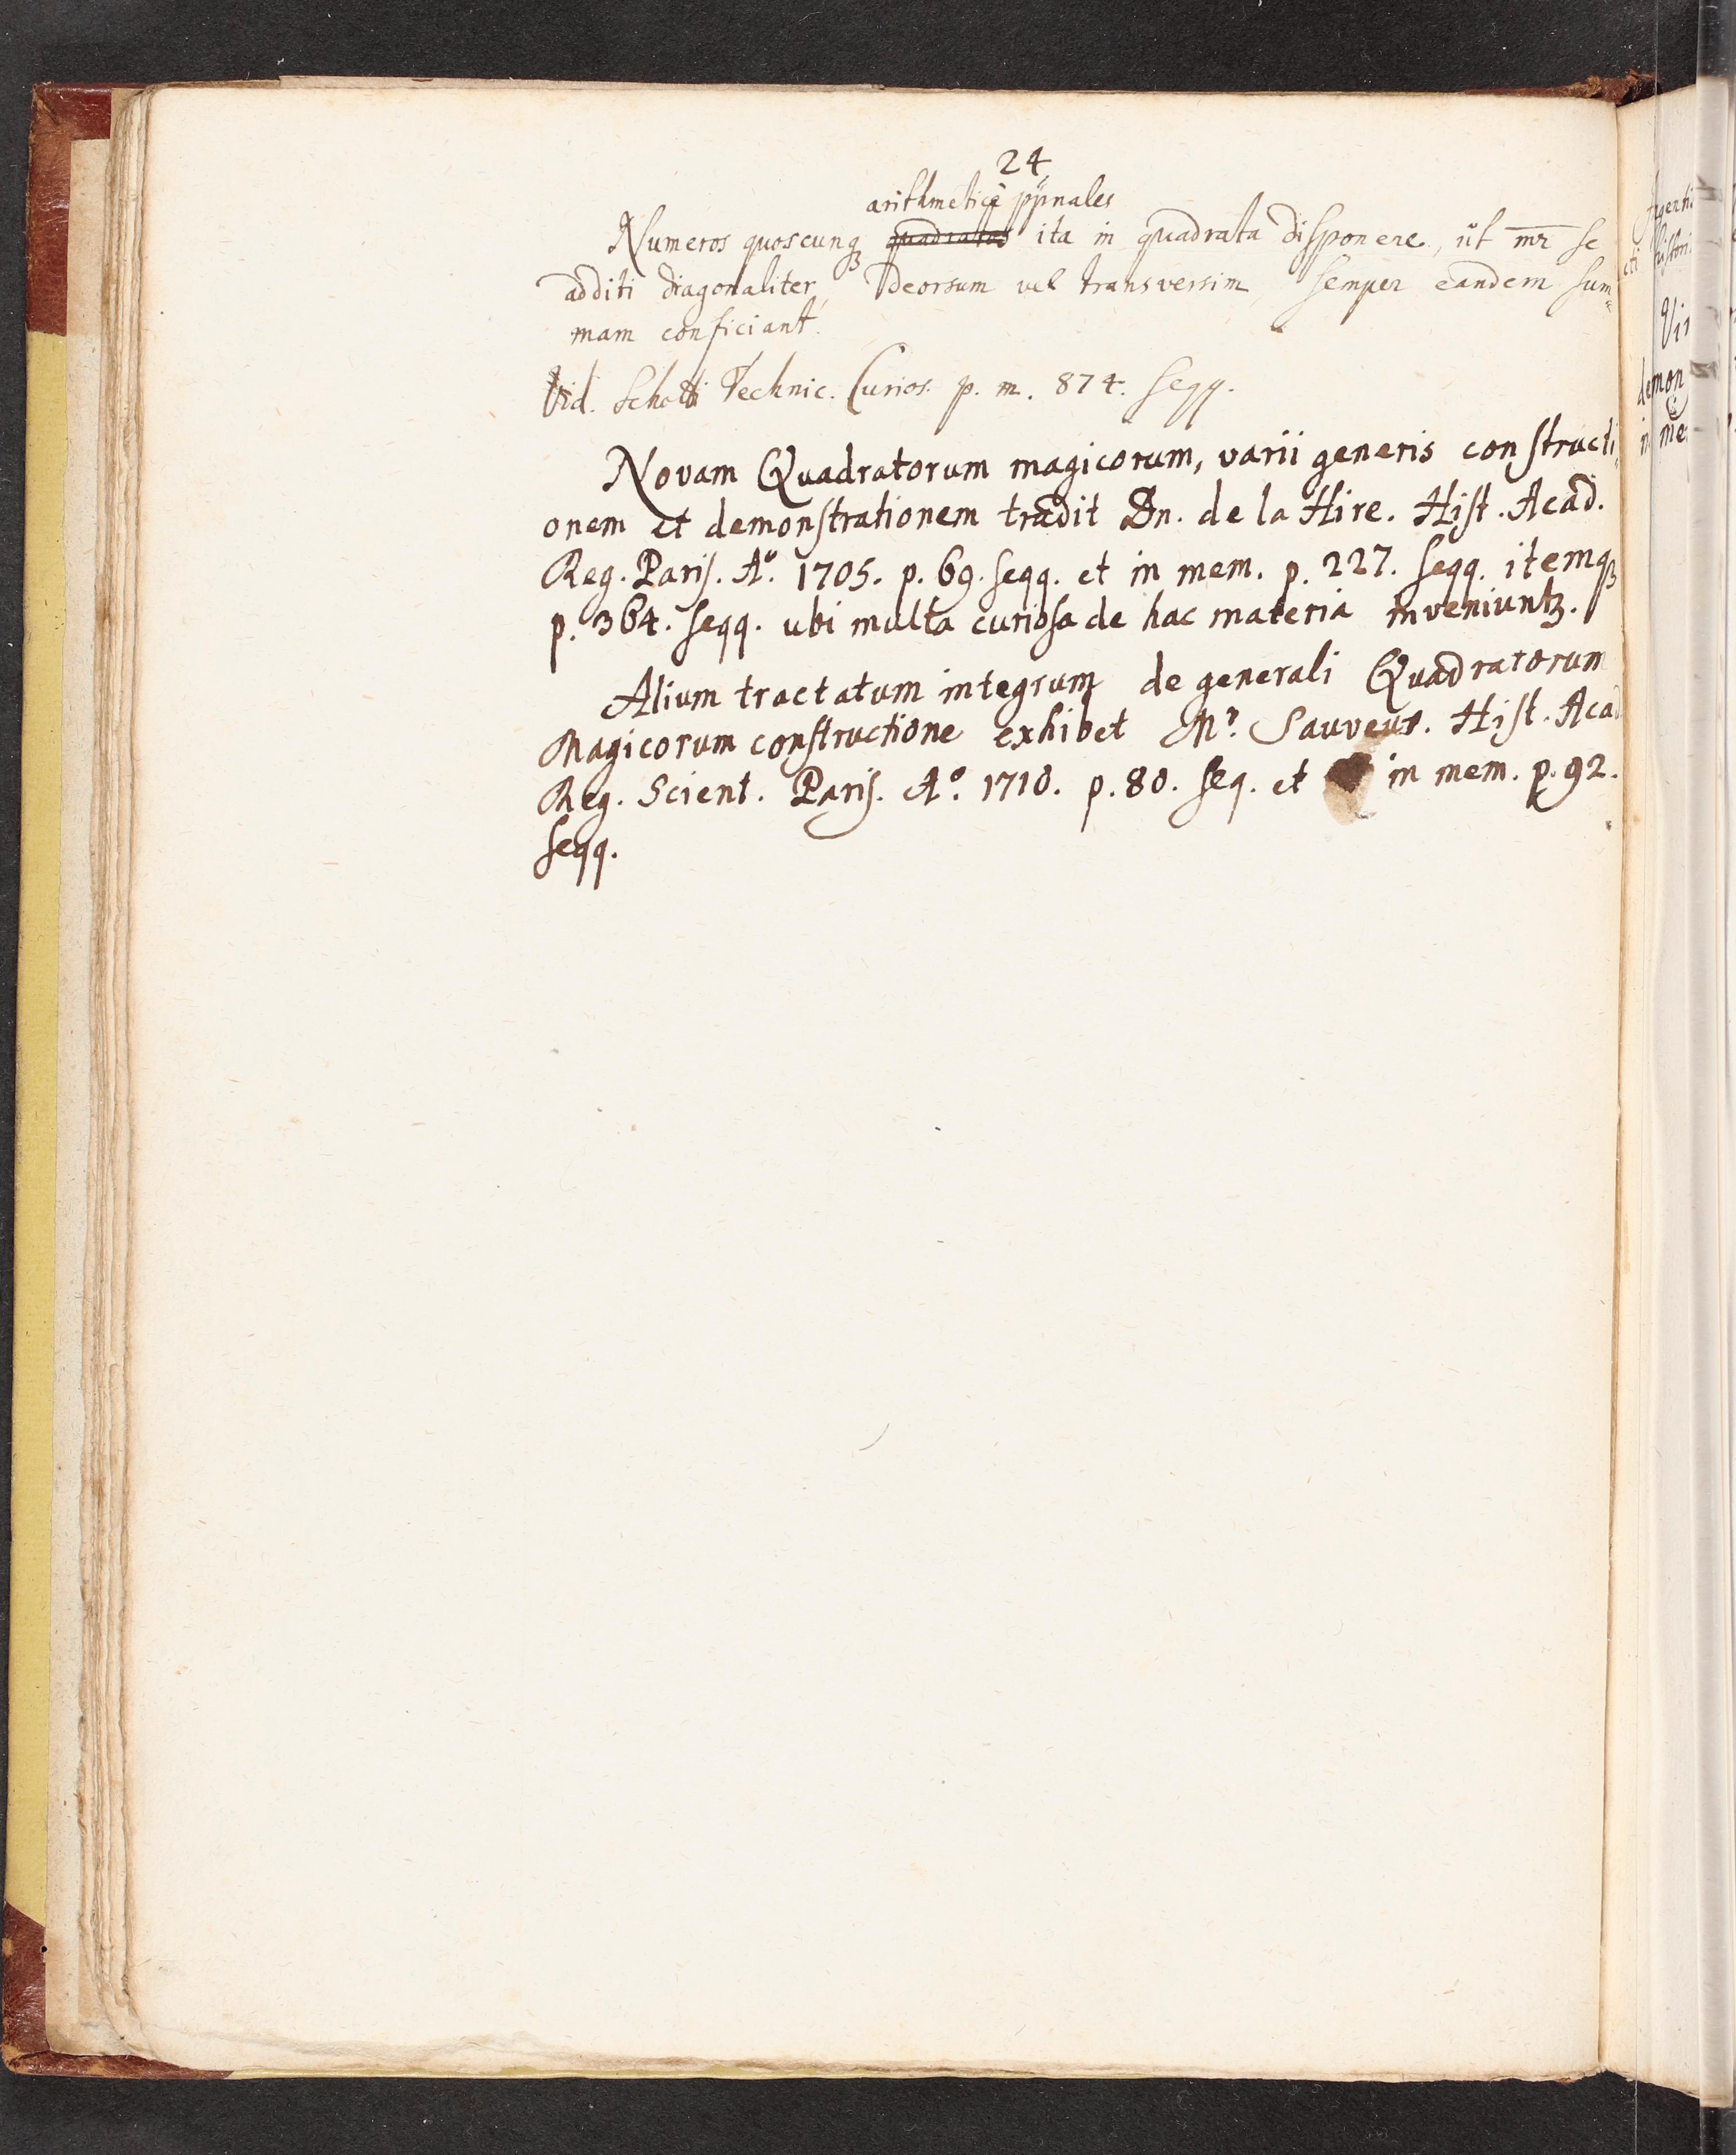 24.
arithmeticè ppnales
Numeros quoscunqꝫ quadratos ita in quadrata disponere, ut mr se
additi diagonaliter, deorsum vel transversim, semper eandem sum-
mam conficiant.
Vid. Schotti Technic. Curios. p. m. 874. seqq.
Novam Quadratorum magicorum, varii generis constructi-
onem et demonstrationem tradit Dn. de la Hire. Hist. Acad.
Reg. Paris. Aº. 1705. p. 69. seqq. et in mem. p. 227. seqq. itemqꝫ
p. 364. seqq. ubi multa curiosa de hac materia inveniuntꝫ.
Alium tractatum integrum de generali Quadratorum
Magicorum constructione exhibet Mr. Sauveur. Hist. Acad
Reg. Scient. Paris. Aº. 1710. p. 80. seq. et in mem. p. 92.
seqq.